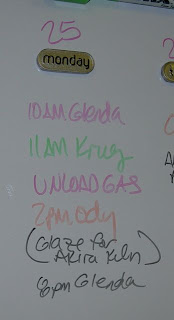 25
monday
10AM Glenda
11AM Krueg
UNLOAD GAS
2pm Ody
(Glaze for
Akira Kiln)
8pm Glenda